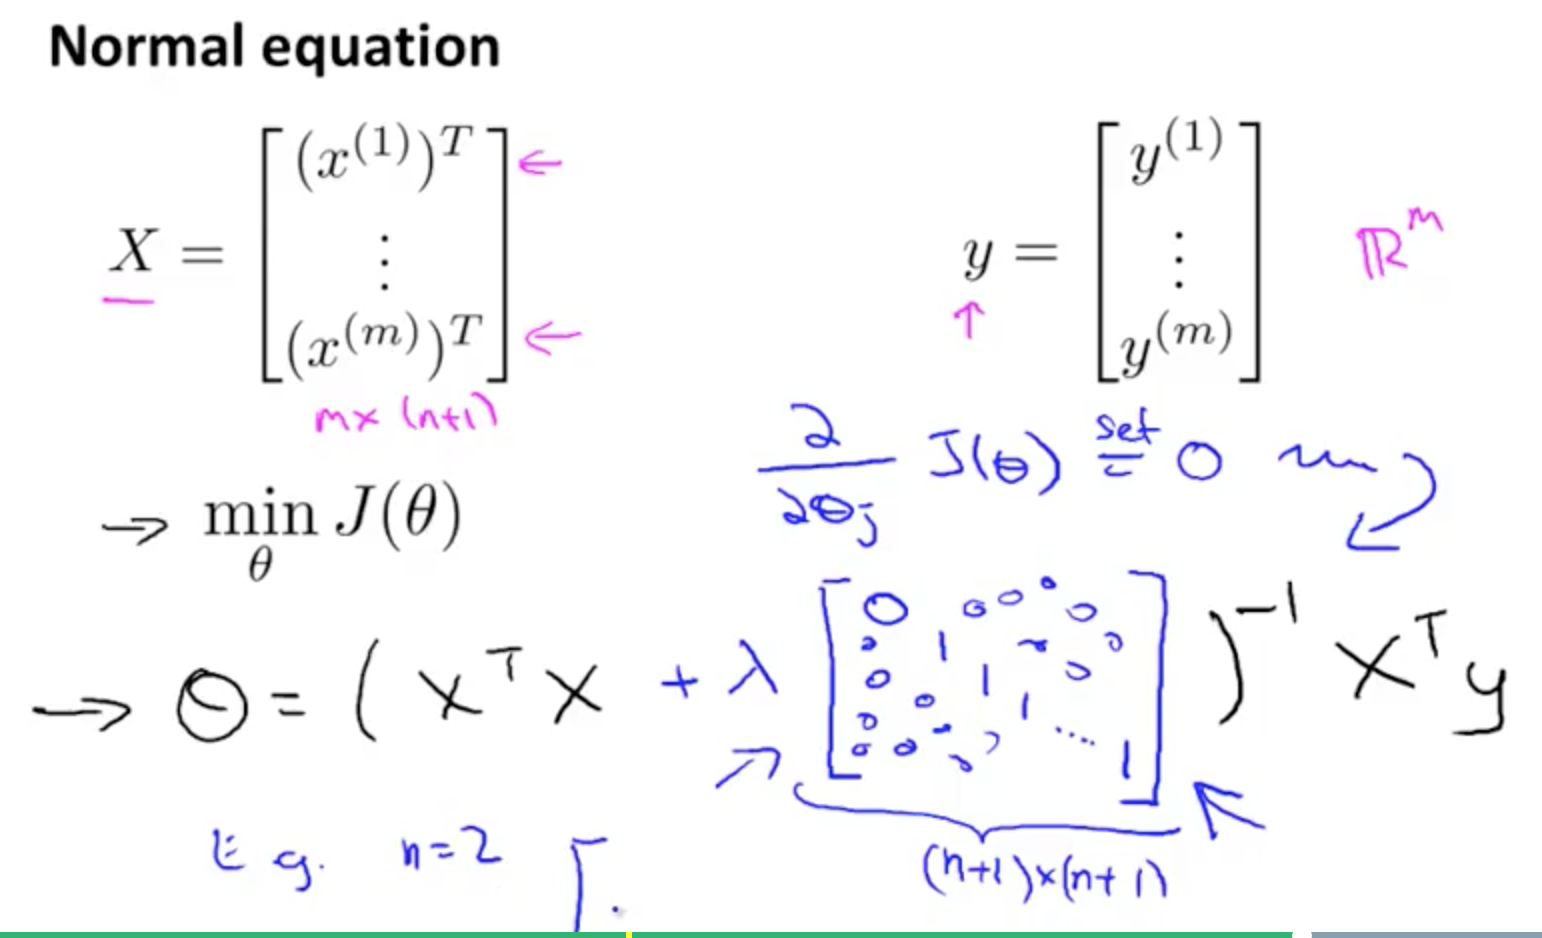 Normal equation
X = [ (x^(1))^T ⋮ (x^(m))^T ] ← ←
m × (n+1)
y = [ y^(1) ⋮ y^(m) ] ℝ^m
↑
∂/∂θ_j J(θ) set = 0
→ min_θ J(θ)
→ θ = ( X^T X + λ [ 0 0 0 0 0 1 0 0 1 0 0 1 0 0 ... 1 ] )^-1 X^T y
(n+1)×(n+1)
E.g. n=2 [